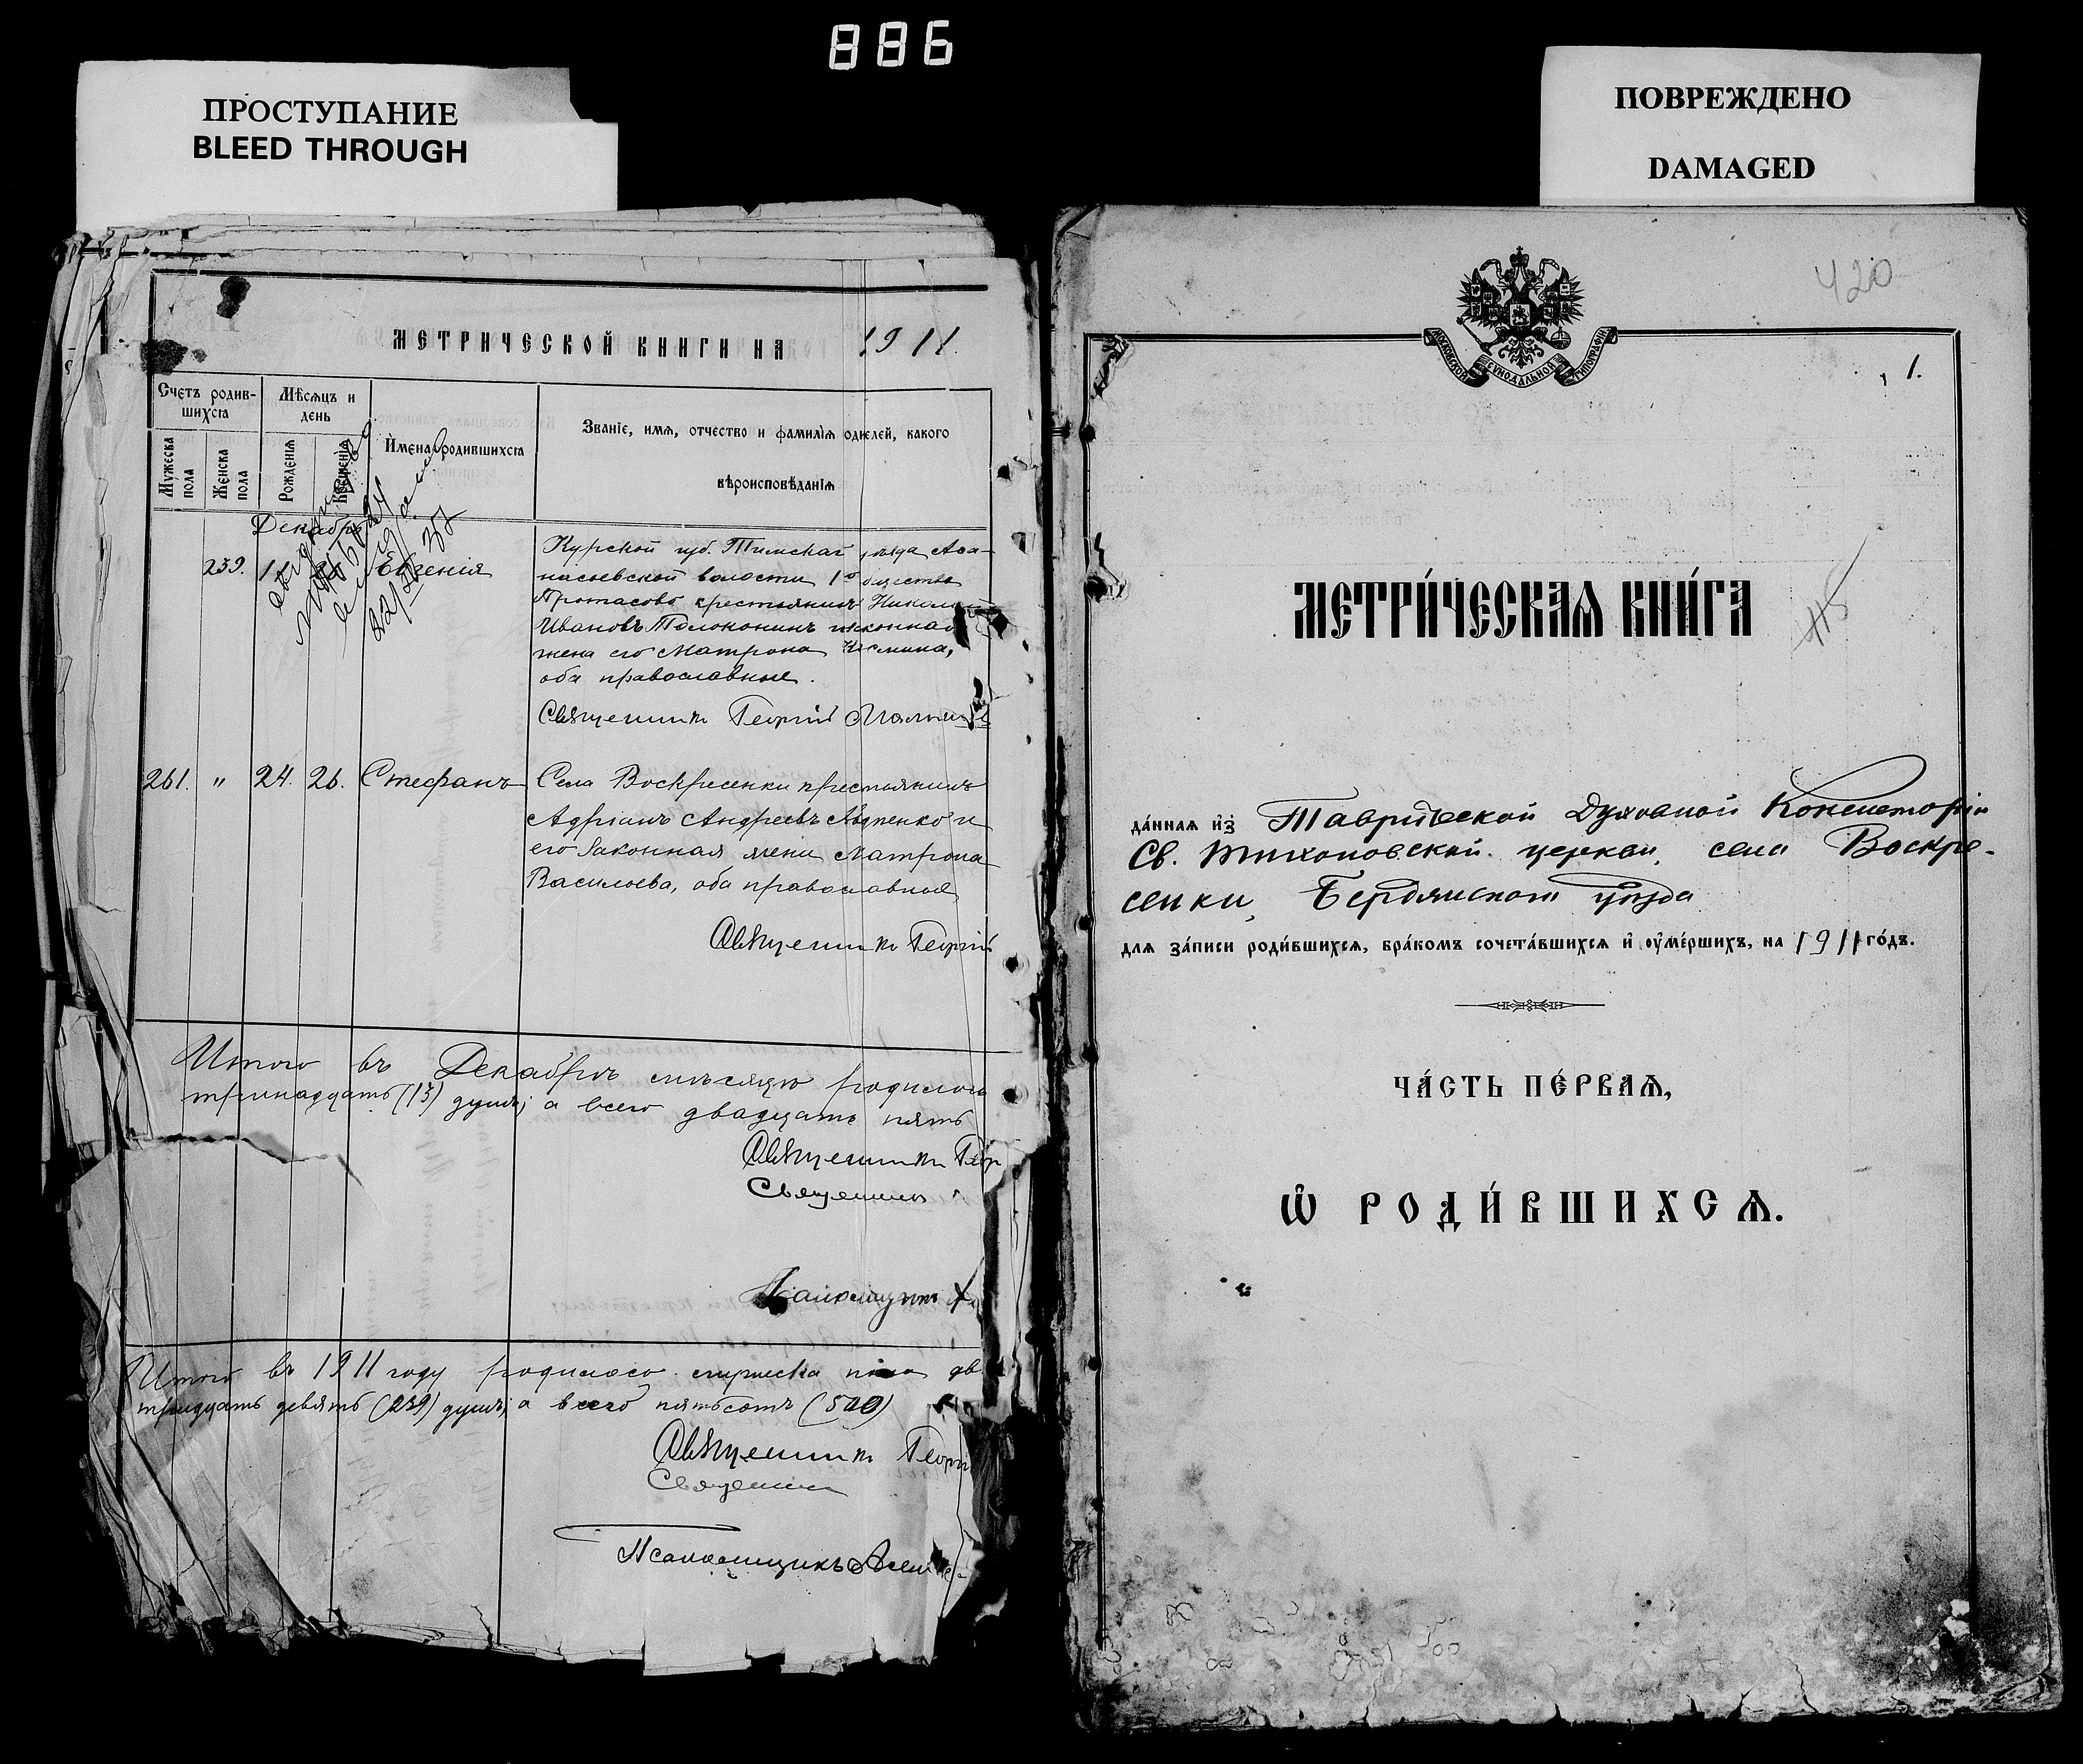 886
ПРОСТУПАНИЕ
BLEED THROUGH
ПОВРЕЖДЕНО
DAMAGED
МЕТРИЧЕСКОЙ КНИГИ НА 1911.
Счетъ родив-
шихсѧ
Мѣсѧцъ и
день
Мужеска
пола
Женска
пола
Рожденїѧ
Крещенїѧ
Имена родившихсѧ
Званїе, имѧ, отчество и фамилїѧ родителей, какого
вѣроисповѣданїѧ
Декабрь
239.
Евгенія
Курской губ. Тимскаго уѣзда Аѳа-
насьевской волости 1го общества
Протасово крестьянинъ Николай
Ивановъ Толоконинъ и законная
жена его Матрона
оба православные.
Священникъ Георгій
261. " 24. 26. Стефанъ
Села Воскресенки крестьянинъ
Адріанъ Андреевъ Авдѣенко и
его законная жена Матрона
Васильева, оба православные
Священникъ Георгій
Итого въ Декабрѣ мѣсяцѣ родилось
тринадцать (13) душъ; а всего двадцать пять
Священникъ Геор
Священникъ
Псаломщикъ
Итого въ 1911 году родилось мужеска пола дв
тридцать девять (239) душъ; а всего пятьсотъ (500)
Священникъ Георгі
Священник
Псаломщикъ
420
МОСКОВСКОЙ СУНОДАЛЬНОЙ ТИПОГРАФІИ
1.
МЕТРИ́ЧЕСКАѦ КНИ́ГА
да́ннаѧ из Таврической Духовной Консисторіи
Св. Тихоновской церкви, села Воскре-
сенки, Бердянскаго уѣзда
длѧ за́писи роди́вшихсѧ, бра́комъ сочета́вшихсѧ и ѹме́ршихъ, на 1911 го́дъ.
ЧА́СТЬ ПЕ́РВАѦ,
Ѡ РОДИ́ВШИХСѦ.